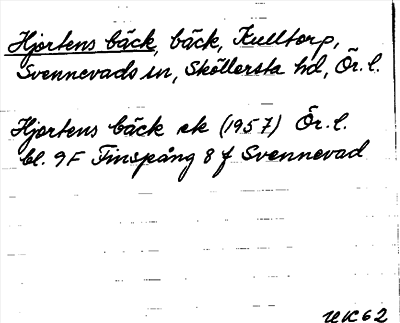 Hjortens bäck, bäck, Kulltorp,
Svennevads sn, Sköllersta hd, Ör. l.
Hjortens bäck ek (1957) Ör. l.
bl. 9F Finspång 8 f Svennevad
UK 62